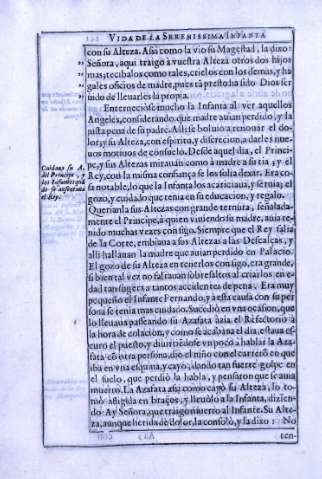 VIDA DE LA SERENISSIMA INFANTA
con su Alteza. Assi como la vio su Magestad, la dixo:
Señora, aqui traigo à vuestra Alteza otros dos hijos
mas; recibalos como tales, crielos con los demas, y ha-
gales oficios de madre, pues tã presto ha sido Dios ser
uido de lleuarles la propia.
Enterneciòse mucho la Infanta al ver aquellos
Angeles, considerando, que madre auian perdido, y la
justa pena de su padre. Alli se boluio a renouar el do-
lor, y su Alteza, con espiritu, y discrecion, a darles nue-
uos motiuos de consuelo. Desde aquel dia, el Princi-
pe, y sus Altezas mirauan como à madre a su tia, y el
Rey, con la misma confiança se los solia dexar. Era co
sa notable, lo que la Infanta los acariciaua, y seruia; el
gozo, y cuidado que tenia en su educacion, y regalo.
Querianla sus Altezas con grande ternura, señalada-
mente el Principe, a quien viuiendo su madre, auia te-
nido muchas vezes consigo. Siempre que el Rey salia
de la Corte, embiaua a sus Altezas a las Descalças, y
alli hallauan la madre que auian perdido en Palacio.
El gozo de su Alteza en tenerlos consigo, era grande,
si bien tal vez no faltauan sobresaltos al criarlos en e-
dad tan sugeta a tantos accidentes de pena. Era muy
pequeño el Infante Fernando, y a esta causa con su per
sona se tenia mas cuidado. Sucediò en vna ocasion, que
lo lleuaua passeando su Azafata àzia el Refectorio à
la hora de colacion, y como se acabaua el dia, estaua es-
curo el puesto, y
la Azafa-
ta cõ otra persona, dio el niño con el carreton en que
iba en vna esquina, y cayò, dando tan fuerte golpe en
el suelo, que perdiò la habla, y pensaron que se auia
muerto. La Azafata assi como cayò su Alteza, lo to-
mò afligida en braços, y lleuòlo a la Infanta, diziẽn-
do: Ay Señora, que traigo muerto al Infante. Su Alte-
za, aunque herida de dolor, la consolò, y la dixo: No
ten-
Cuidaua su A.
del Principe, y
los Infantes quã
do se ausentaua
el Rey.